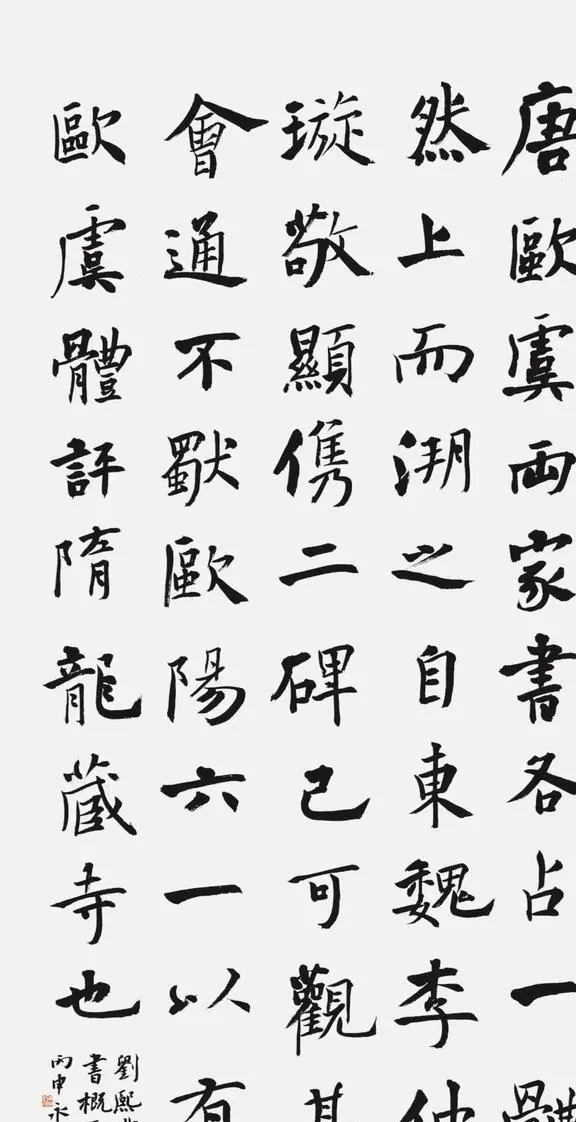 唐歐虞兩家書各占一體
然上而溯之自東魏李仲
璇敬顯儁二碑已可觀其
會通不獨歐陽六一以有
歐虞體評隋龍藏寺也
劉熙
書概
丙申永